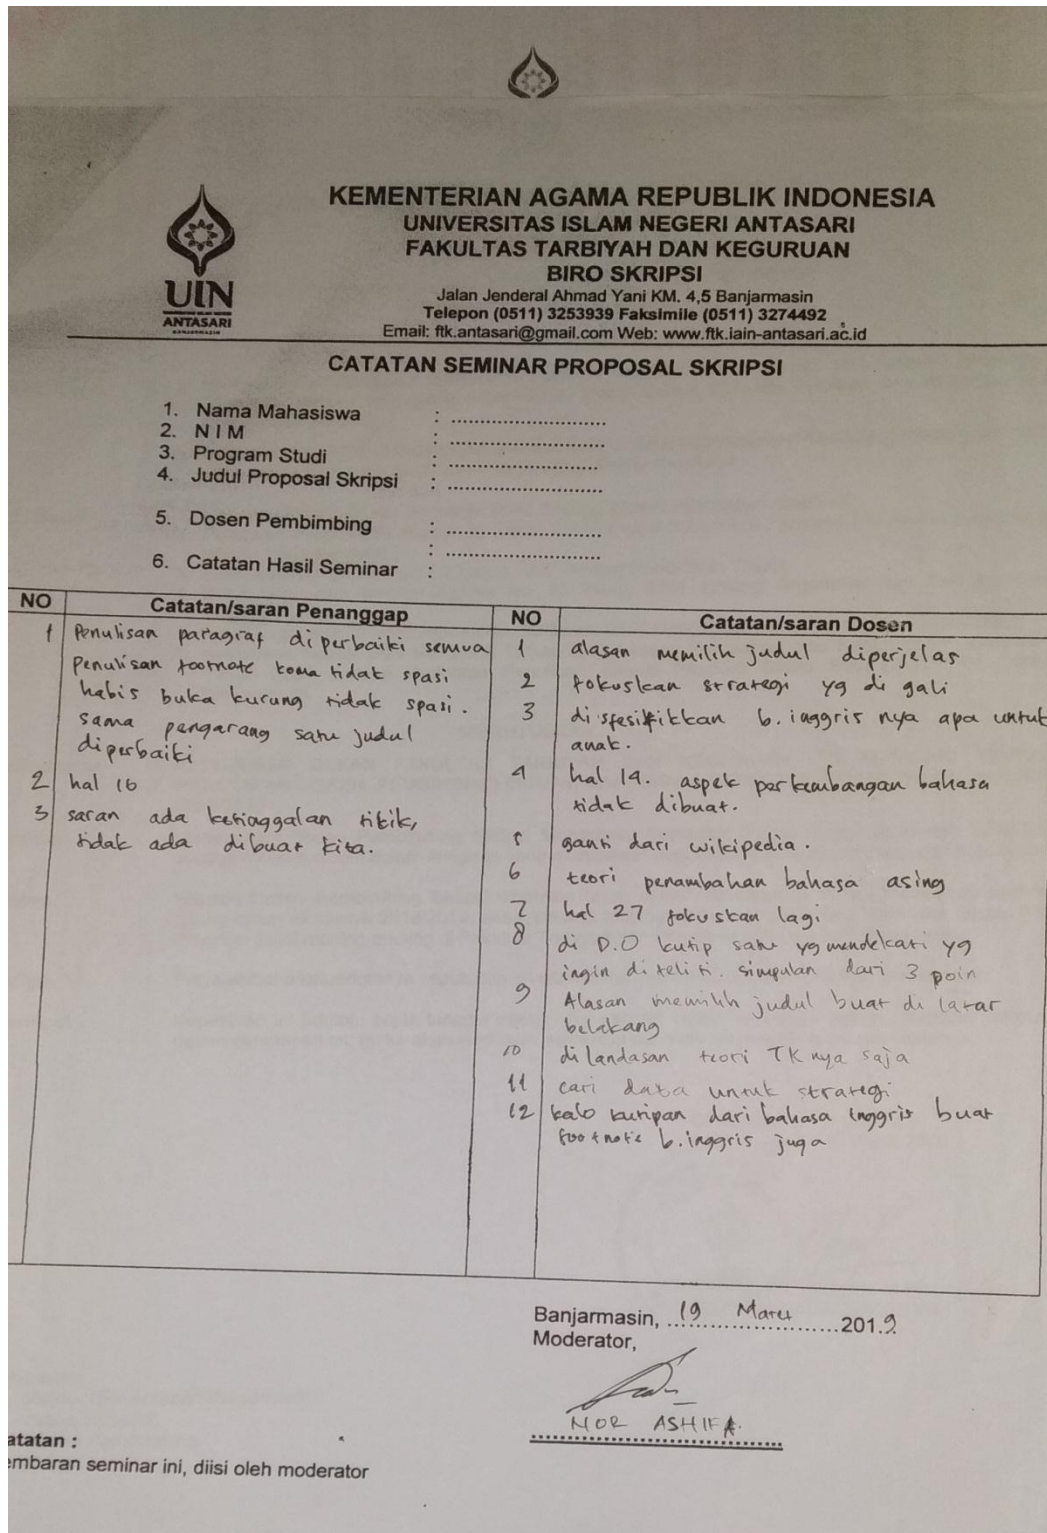 UIN
ANTASARI
BANJARMASIN
KEMENTERIAN AGAMA REPUBLIK INDONESIA
UNIVERSITAS ISLAM NEGERI ANTASARI
FAKULTAS TARBIYAH DAN KEGURUAN
BIRO SKRIPSI
Jalan Jenderal Ahmad Yani KM. 4,5 Banjarmasin
Telepon (0511) 3253939 Faksimile (0511) 3274492
Email: ftk.antasari@gmail.com Web: www.ftk.iain-antasari.ac.id
CATATAN SEMINAR PROPOSAL SKRIPSI
1. Nama Mahasiswa : ...........................
2. N I M : ...........................
3. Program Studi : ...........................
4. Judul Proposal Skripsi : ...........................
5. Dosen Pembimbing : ...........................
: ...........................
6. Catatan Hasil Seminar :
NO Catatan/saran Penanggap
1 Penulisan paragraf diperbaiki semua
penulisan footnote koma tidak spasi
habis buka kurung tidak spasi.
sama pengarang satu judul
diperbaiki
2 hal 16
3 saran ada ketinggalan titik,
tidak ada dibuat kita.
NO Catatan/saran Dosen
1 alasan memilih judul diperjelas
2 fokuskan strategi yg di gali
3 di spesifikkan b. inggris nya apa untuk
anak.
4 hal 14. aspek perkembangan bahasa
tidak dibuat.
5 ganti dari wikipedia.
6 teori penambahan bahasa asing
7 hal 27 fokuskan lagi
8 di D.O kutip satu yg mendekati yg
ingin di teliti. simpulan dari 3 poin
9 Alasan memilih judul buat di latar
belakang
10 di landasan teori TK nya saja
11 cari data untuk strategi
12 kalo kutipan dari bahasa inggris buat
footnote b. inggris juga
Banjarmasin, 19 Maret 2019
Moderator,
NOR ASHIFA
atatan :
embaran seminar ini, diisi oleh moderator